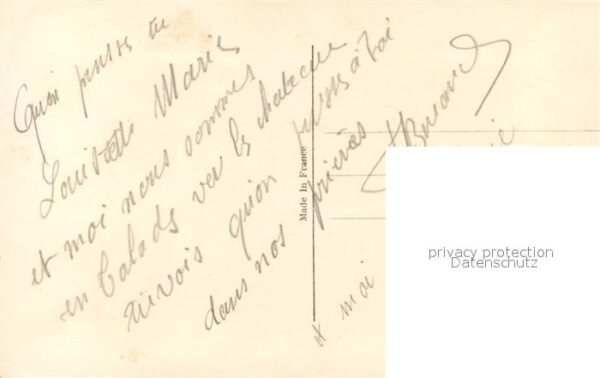 Qu'on penses tu
Louisette Marie
et moi nous sommes
en balade ver le chateau
tu vois qu'on pense a toi
dans nos prières
et moi
Made In France
privacy protection
Datenschutz